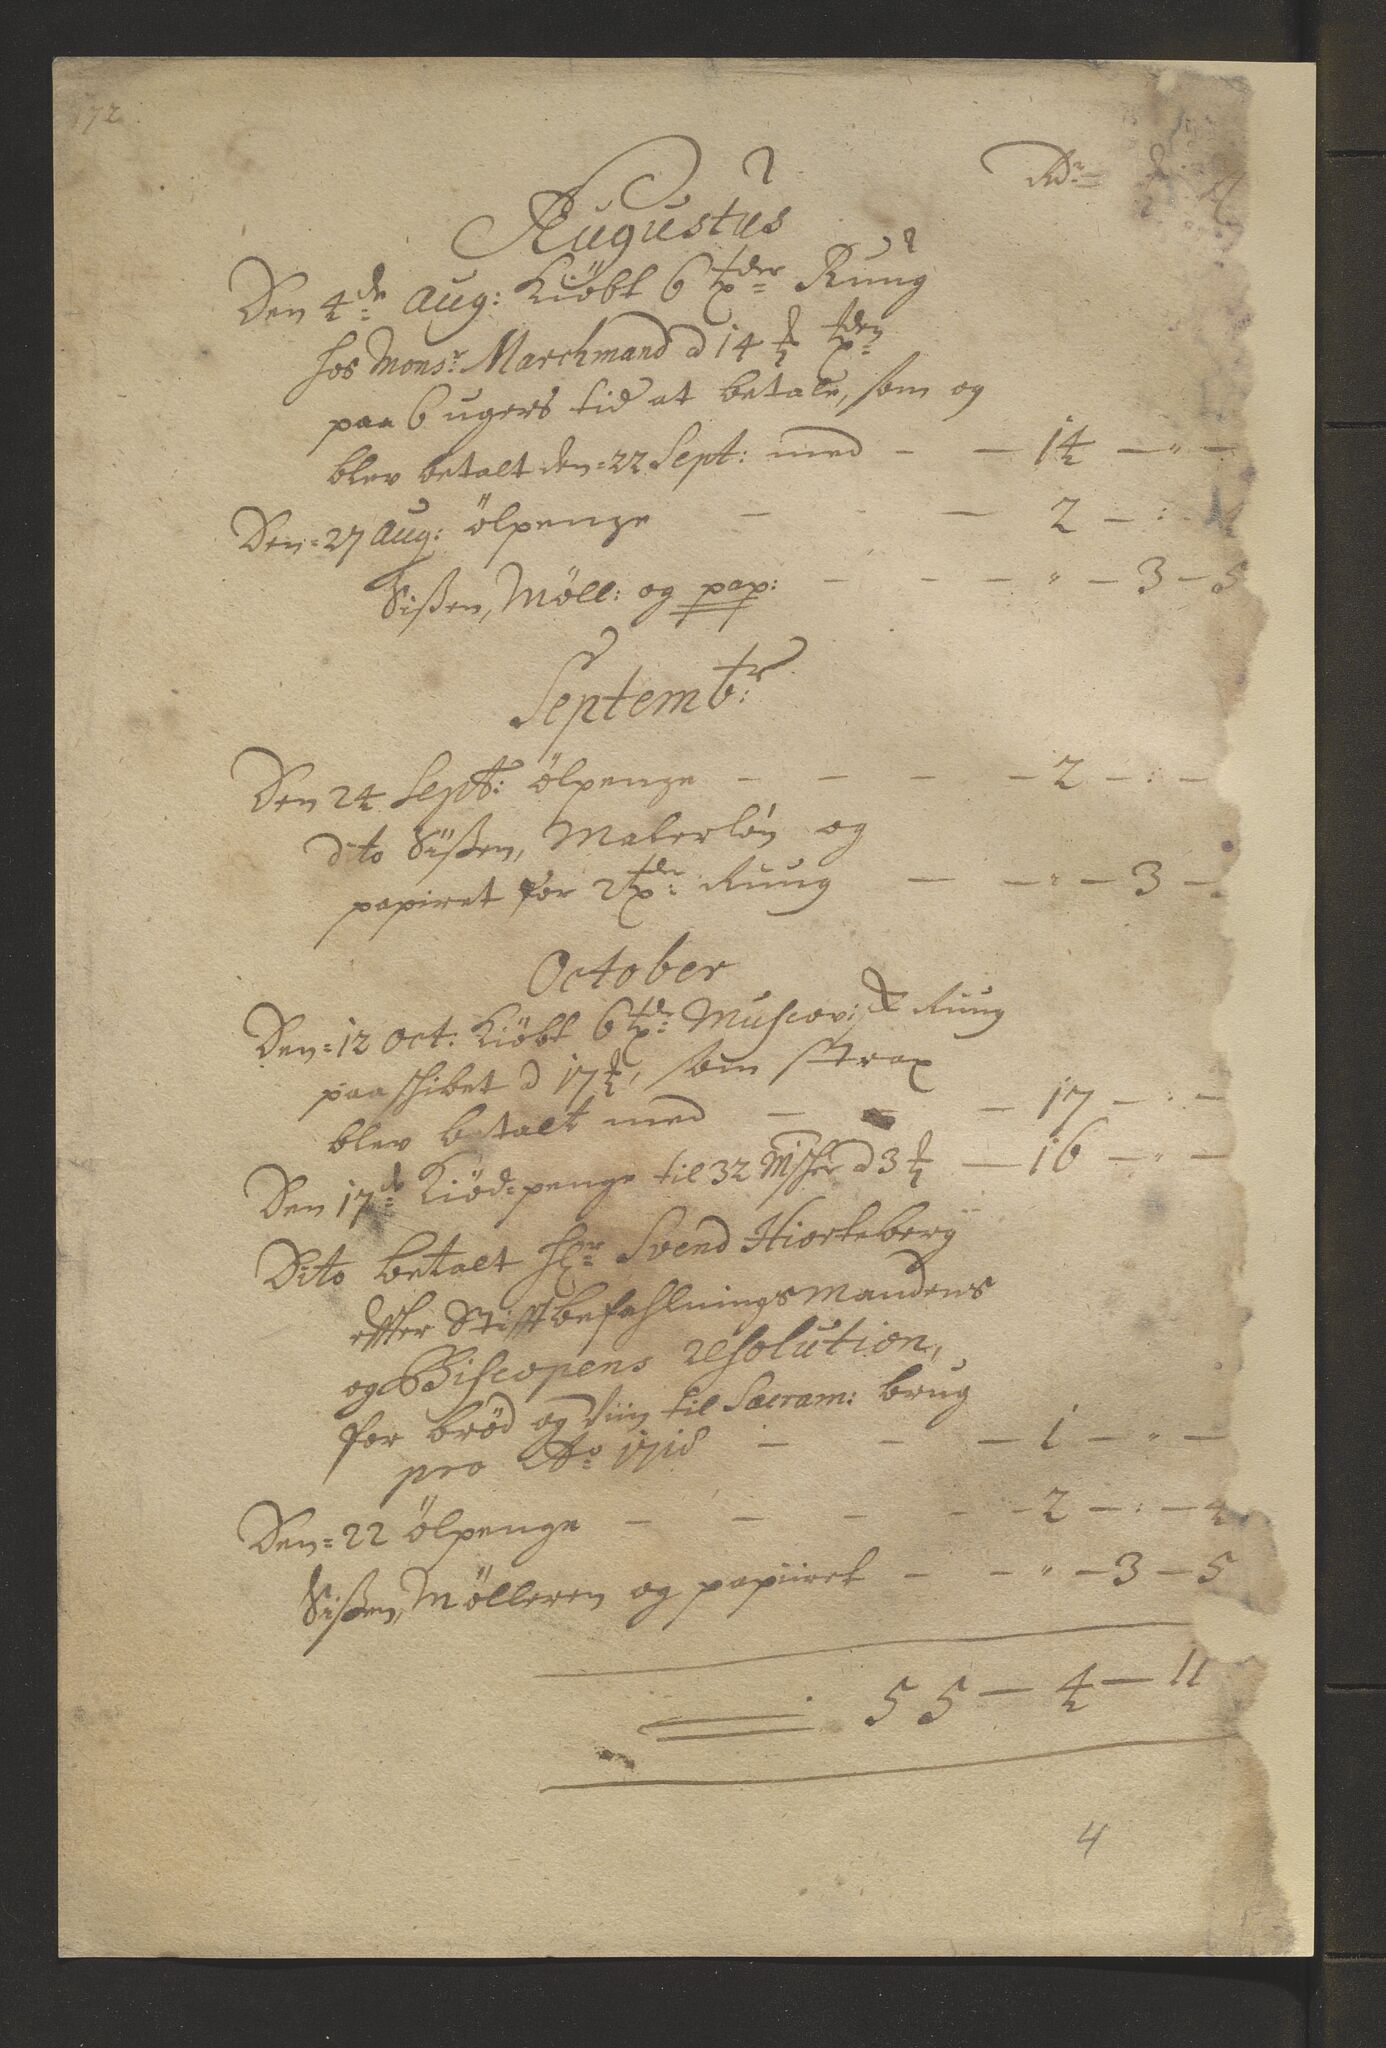 172
Rdr
Augustus
Den 4de Aug: Kiöbt 6 tdr Ruug
hos Monsr Marchmand a 14 tden
paa 6 ugers tid at betale, som og
blev betalt den 22 Sept: med - - 14 - " -
Den 27 Aug: ölpenge - - - 2 - : -
Sißen, Möll: og pap: - - - " - 3 - 5
Septembr:
Den 24 Sept: ölpenge - - - - 2 - : -
dito Sißen, Malerlön og
papiret for 2 tdr Ruug - - " - 3 -
October
Den 12 Oct: Kiöbt 6 tdr Muscov: Ruug
paa schibet a 17, som strax
blev betalt med - - - 17 - : -
Den 17de Kiöd-penge til 32 a 3 - 16 - " -
Dito betalt Hr Svend Hiorteberg
effter Stifftbefahlningsmandens
og Biscopens resolution,
for bröd og Viin til Sacram: brug
pro Ao 1718 - - - 1 - " -
Den 22 ölpenge - - - - 2 - : - 4
Sißen, Mölleren og papiiret - - " - 3 - 5
55 - 4 - 11
4